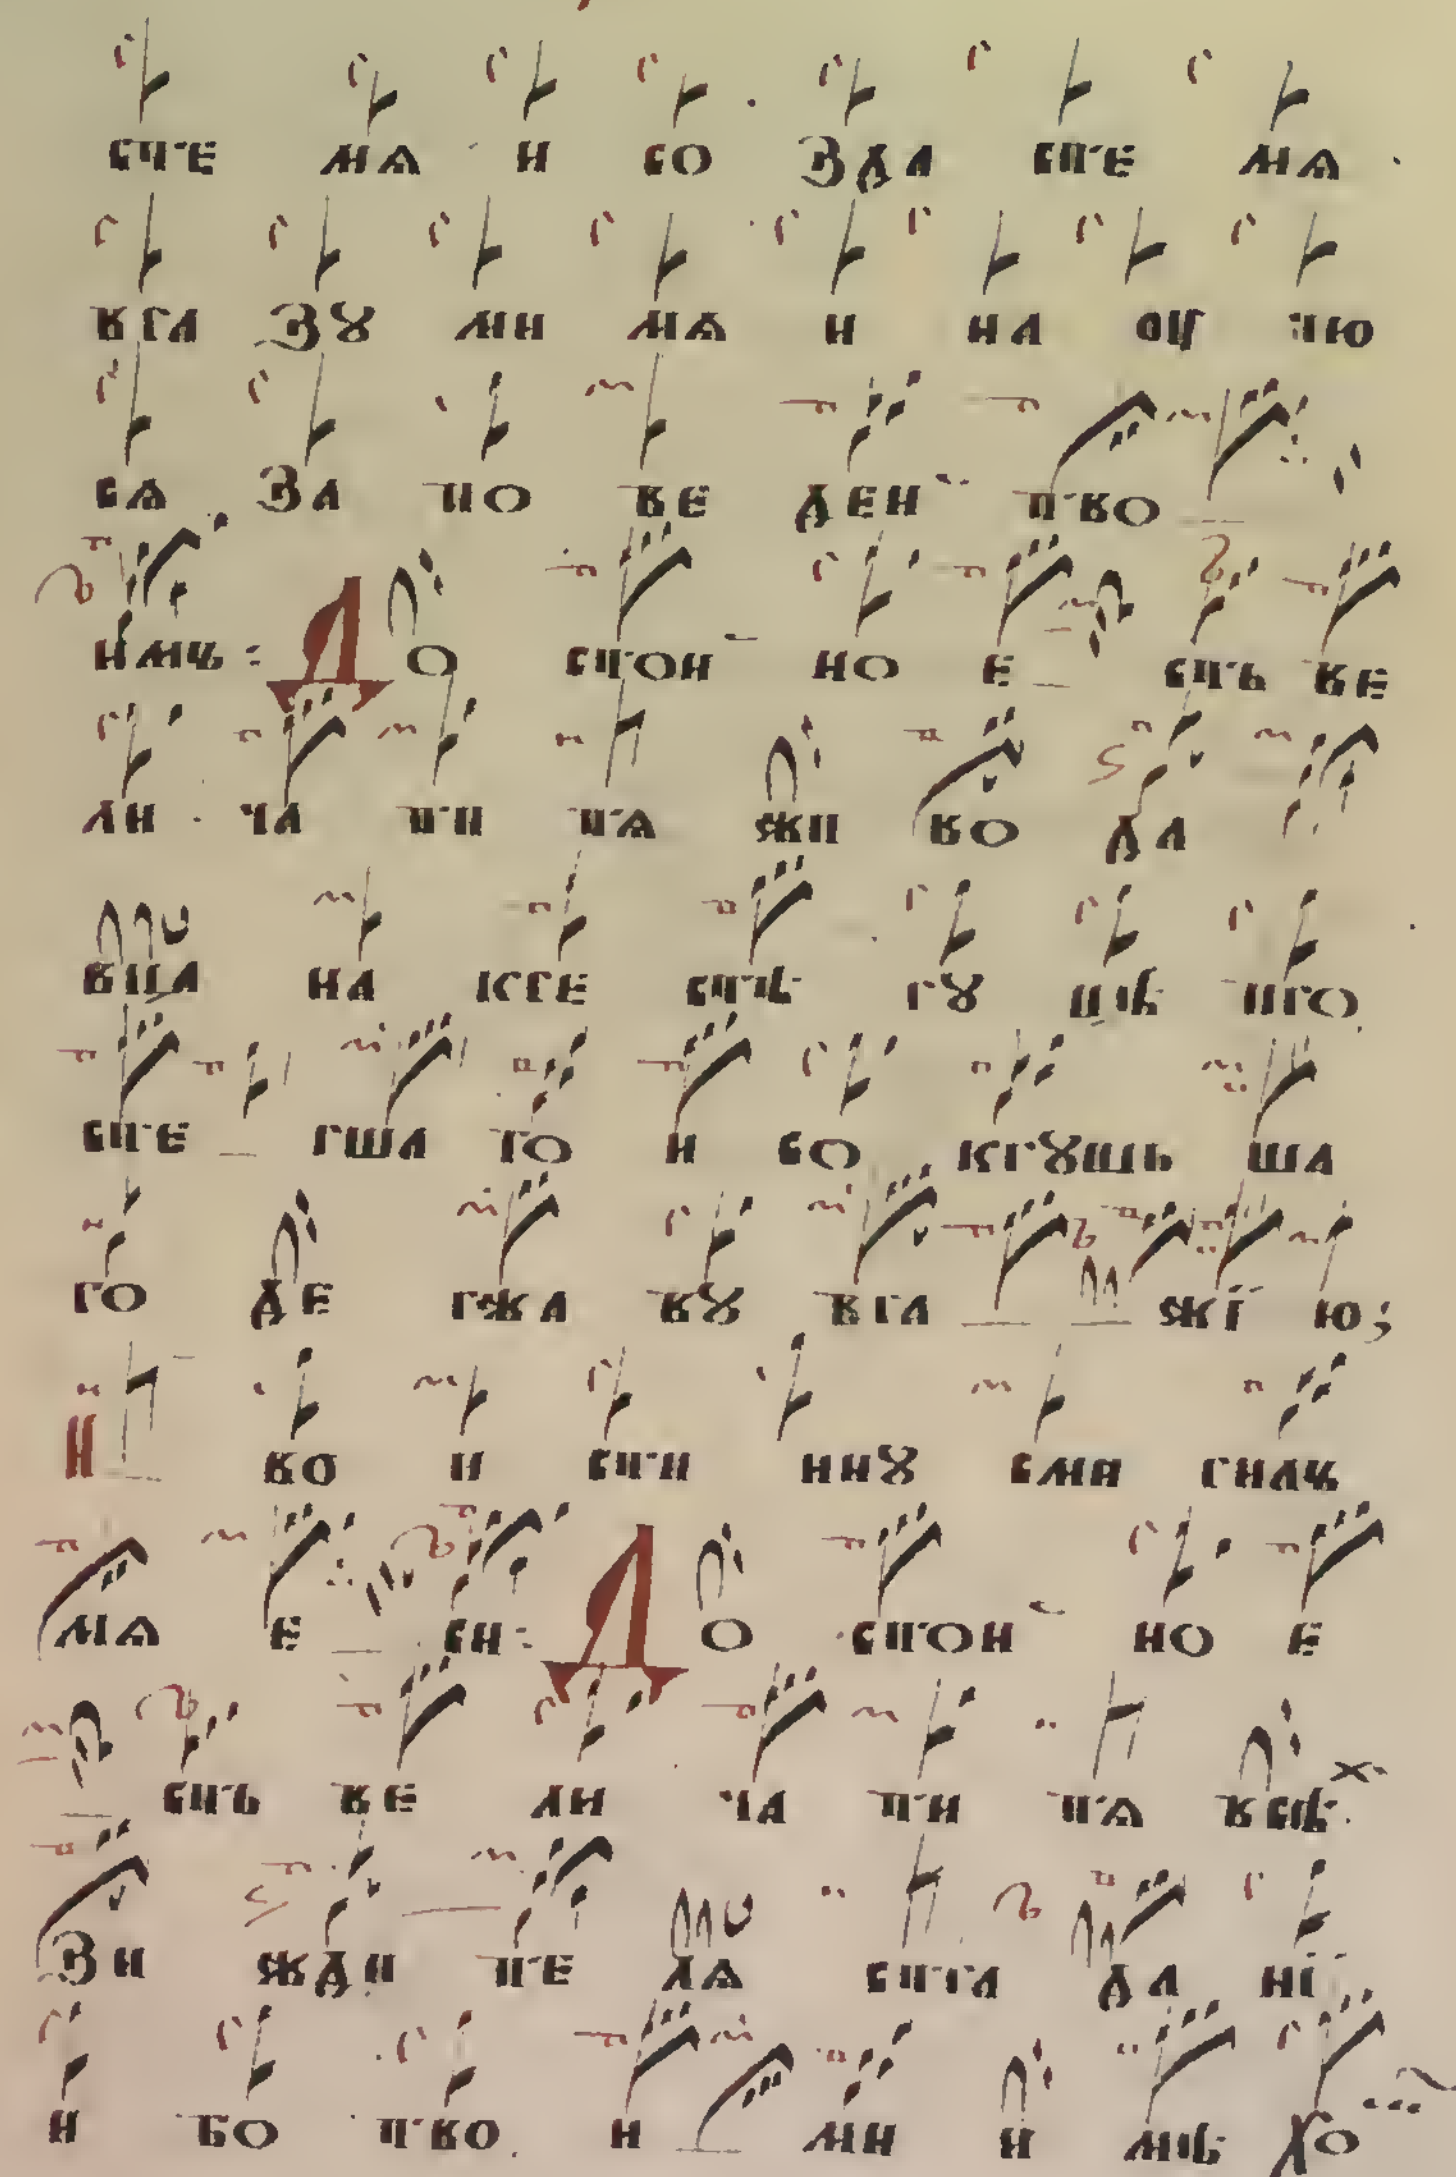 стѣ мѧ и со зда стѣ мѧ
вра зꙋ ми мѧ и на ꙋч лю
сѧ за по ве дем тво
имъ: До стои но е стъ ве
ли ча ти тѧ жи во да
вца на кре стѣ рꙋ цѣ про
сте рша го и со крꙋшь ша
го де ржа вꙋ вра жї ю;
И во и сти ннꙋ сми рилъ
мѧ е си: До стои но е
стъ ве ли ча ти тѧ всѣх
зи жди те лѧ стра да нї
и бо тво и ми и мѣ хо